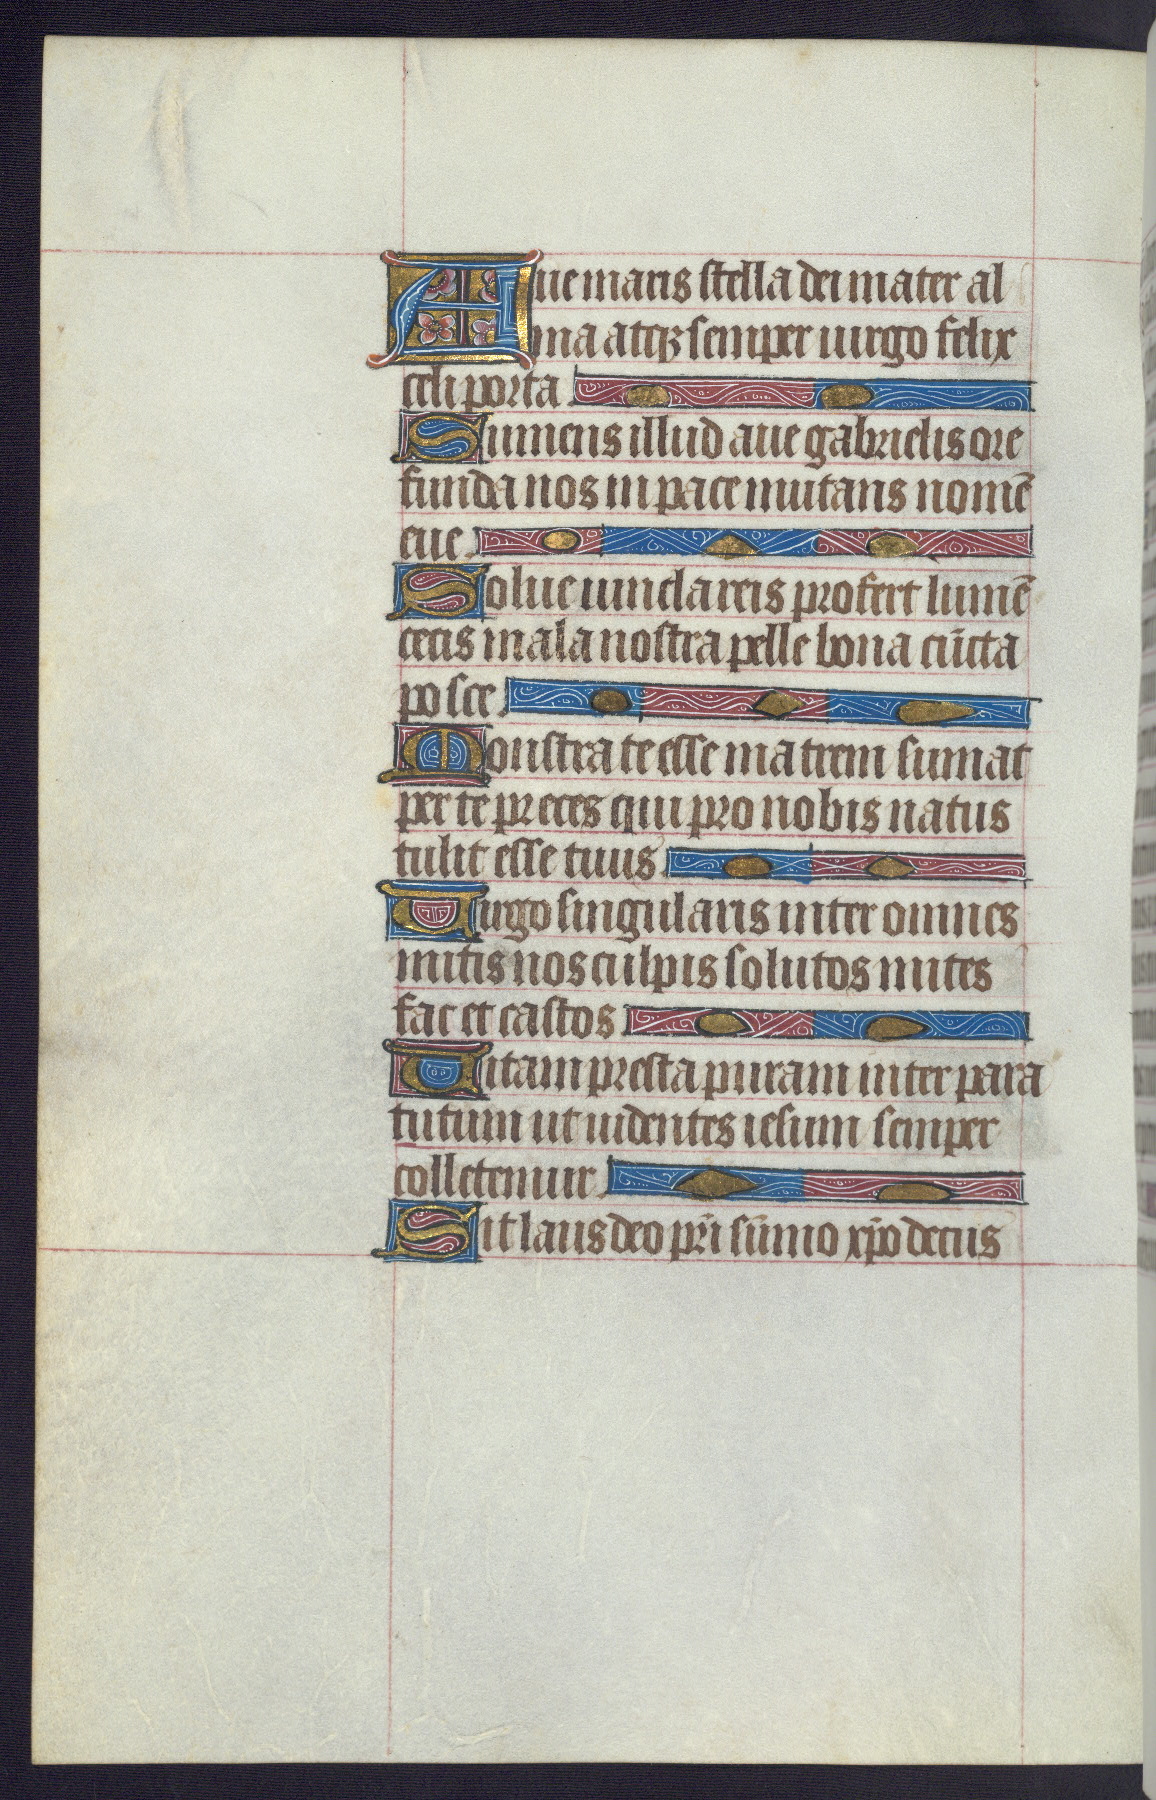 Aue maris stella dei mater al
ma atqꝫ semper uirgo felix
celi porta
Sumens illud aue gabrielis ore
funda nos in pace mutans nomē
eue
Solue uincla reis profert lumē
cecis mala nostra pelle bona cūcta
posce
Monstra te esse matrem sumat
per te preces qui pro nobis natus
tulit esse tuus
Uirgo singularis inter omnes
mitis nos culpis solutos mites
fac et castos
Uitam presta puram inter para
tutum ut uidentes iesum semper
colletemur
Sit laus deo pr̄i sūmo xp̄o decus